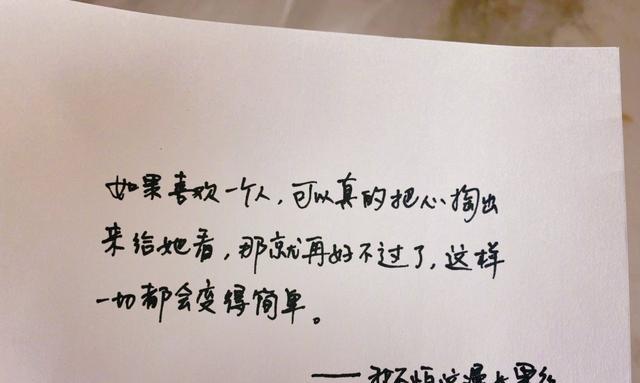 如果喜欢一个人，可以真的把心掏出
来给她看，那就再好不过了，这样
一切都会变得简单。